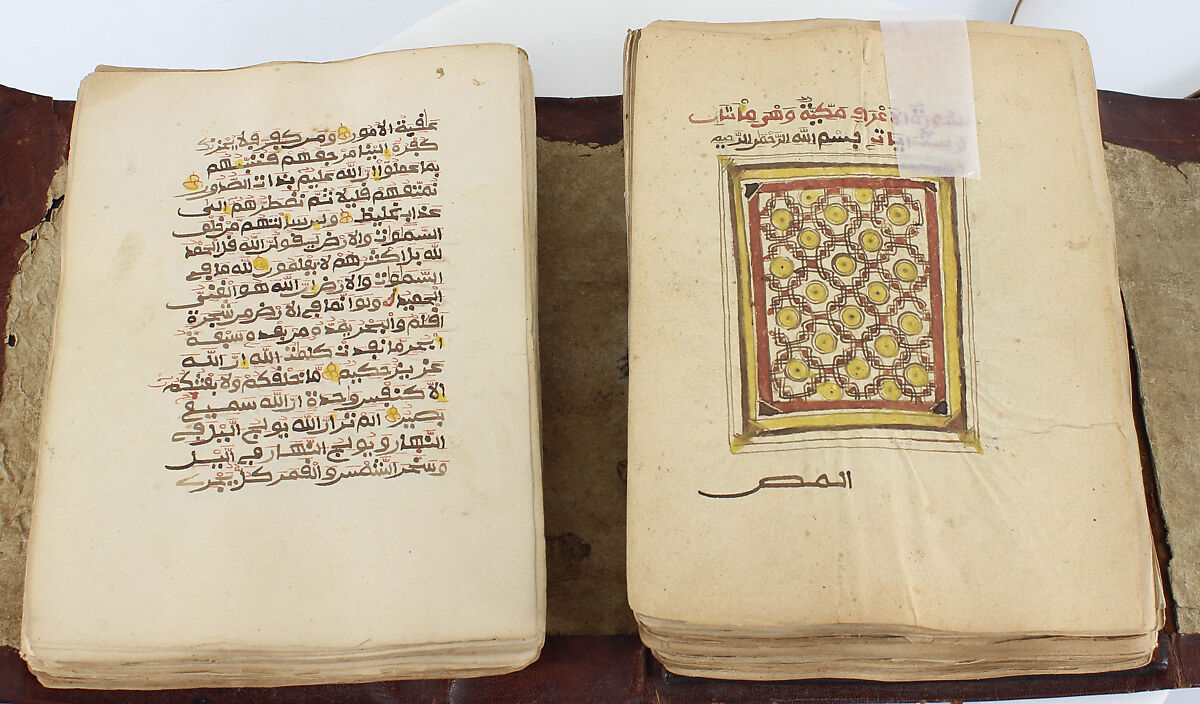 سورة الاعراف مكية وهي مائتان
وست ايات بسم الله الرحمن الرحيم
المص
عقبة الامور ومن كفر فلا يحزنك
كفره الينا مرجعهم فننبئهم
بما عملوا ان الله عليم بذات الصدور
نمتعهم قليلا ثم نضطرهم الى
عذاب غليظ ولين سالتهم من خلق
السموات والارض ليقولن الله قل الحمد
لله بل اكثرهم لا يعلمون لله ما في
السموات والارض ان الله هو الغني
الحميد ولو انما في الارض من شجرة
اقلم والبحر يمده من بعده سبعة
ابحر ما نفدت كلمت الله ان الله
عزيز حكيم ما خلقكم ولا بعثكم
الا كنفس وحدة ان الله سميع
بصير الم تر ان الله يولج اليل في
النهار ويولج النهار في اليل
وسخر الشمس والقمر كل يجري